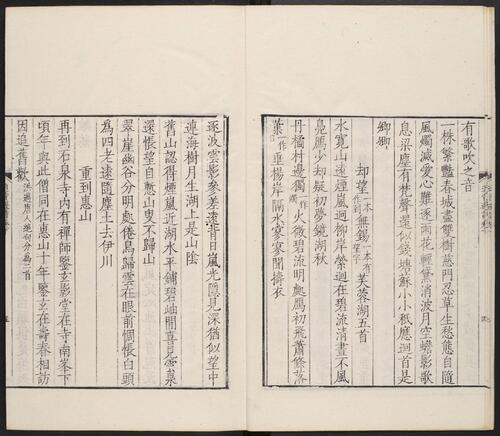 有歌吹之音
一株繁豔春城盡雙樹慈門忍草生愁態自隨
風燭滅愛心難逐雨花輕黛消波月空蟾影歌
息梁塵有梵聲還似錢塘蘇小小秪應迴首是
卿卿
却望一本作到無錫一本有望字芙蓉湖五首
水寬山遠煙嵐迥柳岸縈迴在碧流清晝不風
鳧鴈少却疑初夢鏡湖秋
丹橘村邊獨火微碧流明處鴈初飛蕭條落
葉垂楊岸隔水寥寥聞擣衣
逐波雲影參差遠背日嵐光隱見深猶似望中
連海樹月生湖上是山陰
舊山認得煙嵐近湖水平鋪碧岫間喜見雲泉
還悵望自慙山叟不歸山
翠崖幽谷分明處倦鳥歸雲在眼前惆悵白頭
為四老遠隨塵土去伊川
重到惠山
再到石泉寺內有禪師鑒玄影堂在寺南峯下
頃年與此僧同在惠山十年鑒玄在壽春相訪
因追舊歎洪邁唐人絕句分為二首